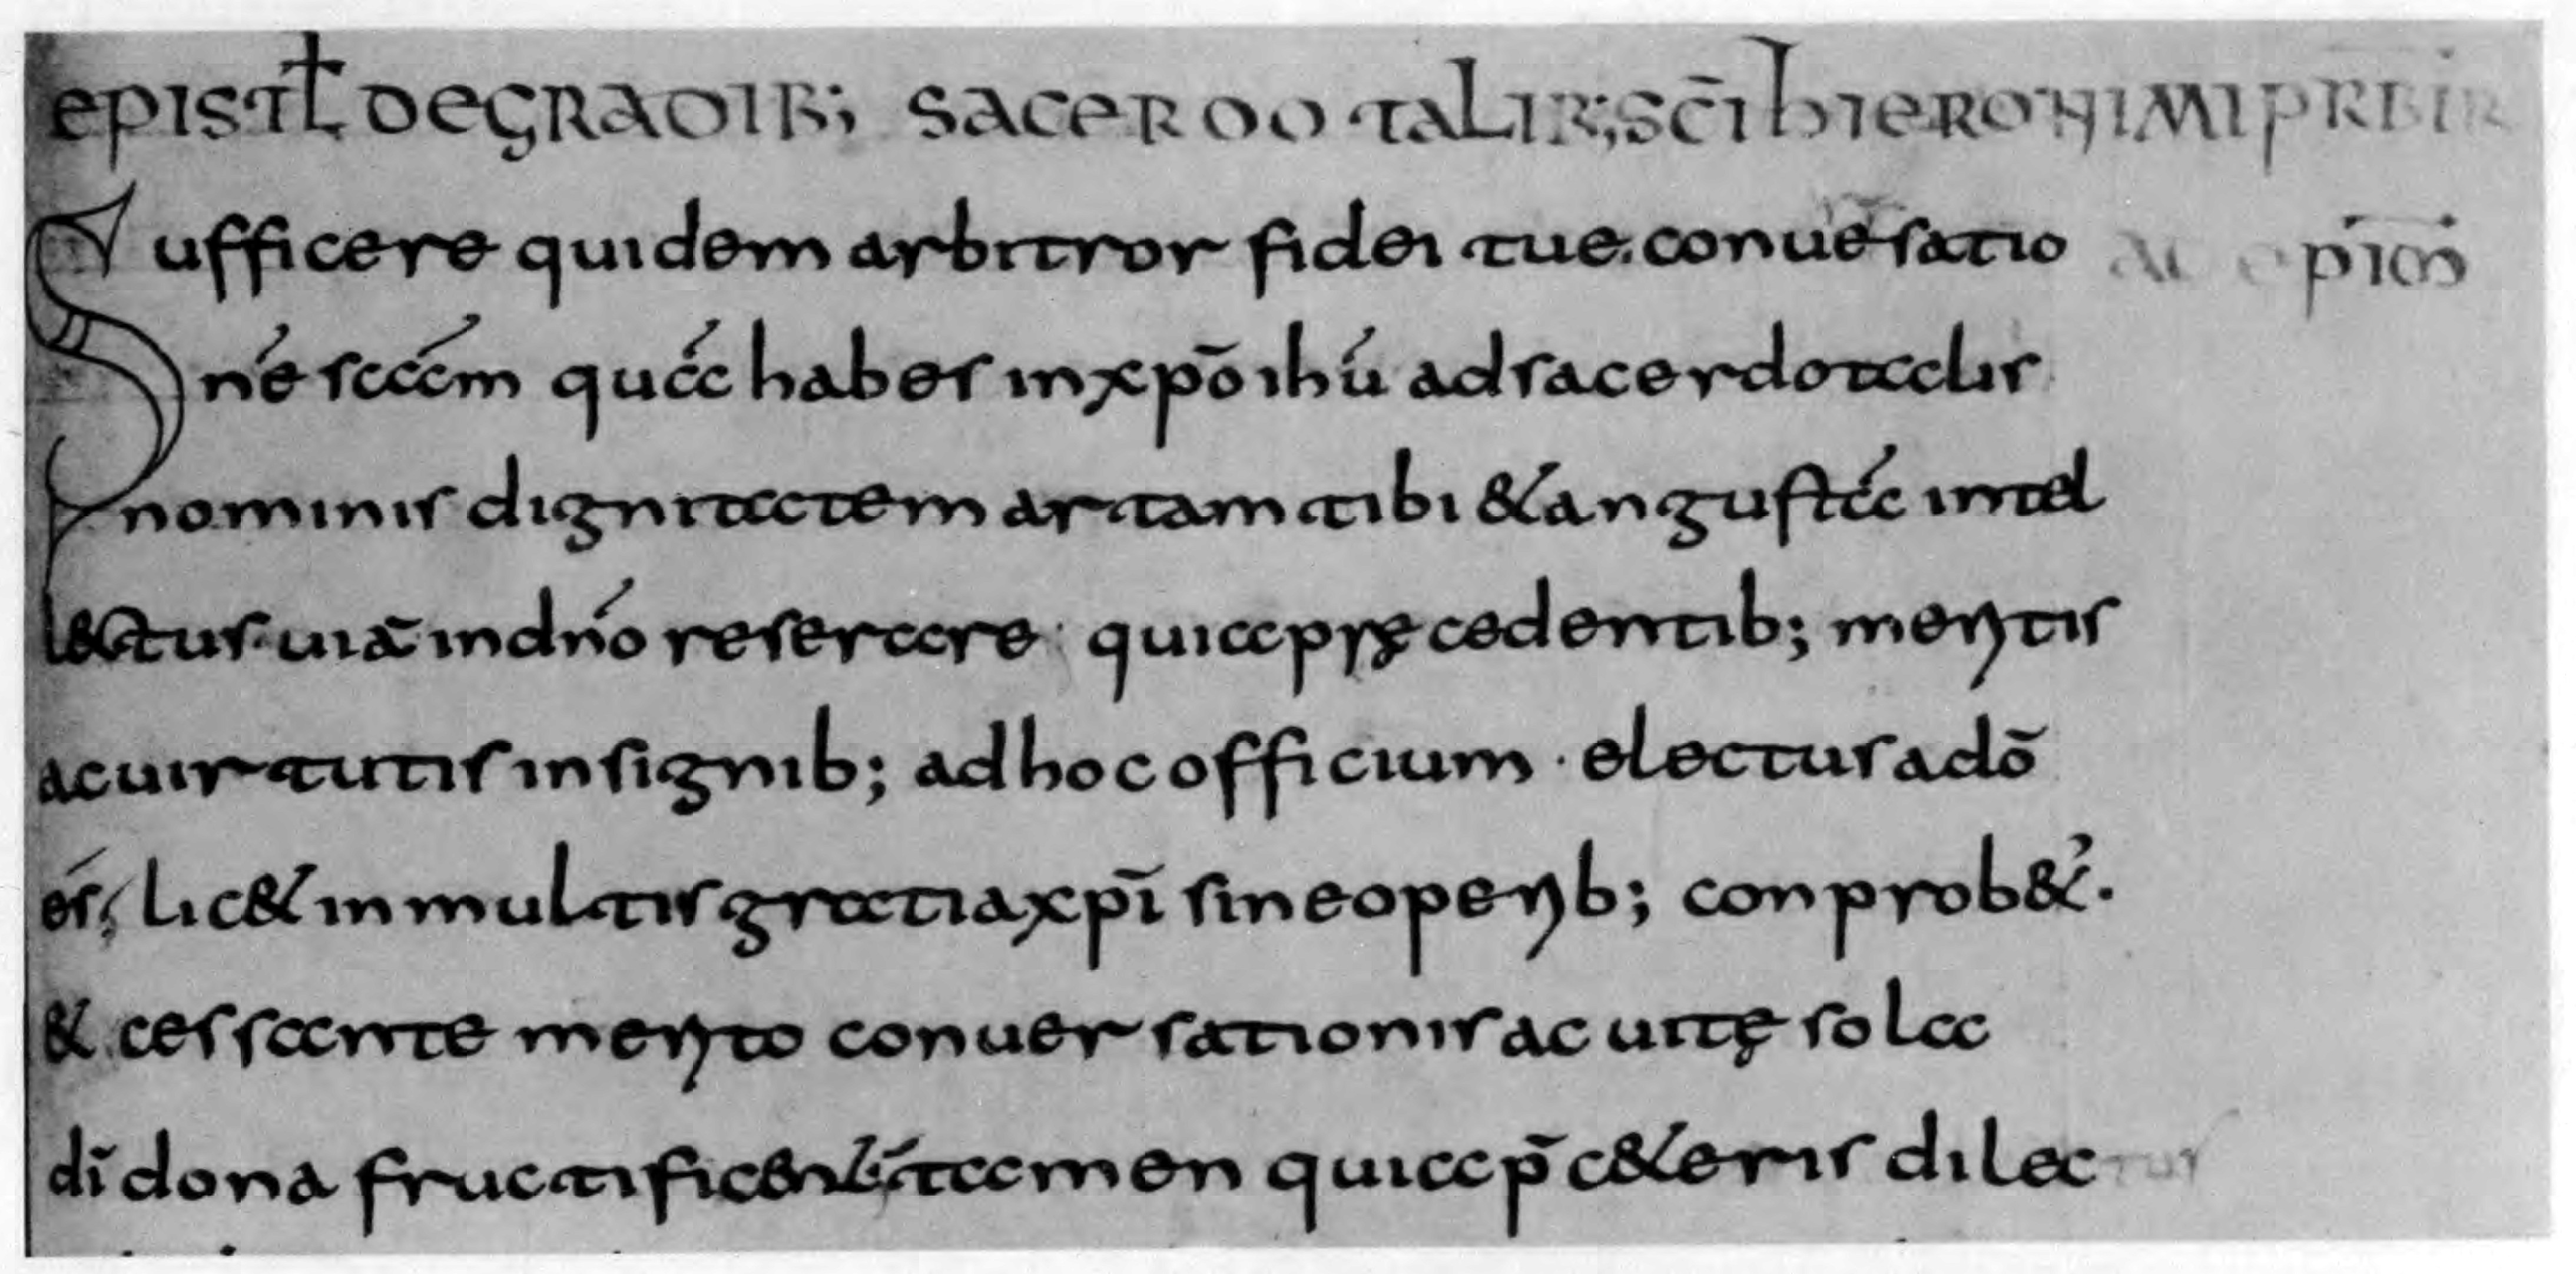 epistł de gradib; sacerdotalib; sc̄i hieronimi prb̄ir
Sufficere quidem arbitror fidei tue. conuersatio ep̄ico
né sccém qucć haber in xp̄o ihú ad sacerdotalis
nominis dignitatem artam tibi & angustá intel
lectus uiā in dńo reserare quia pręcedentib; meritis
ac uirtutis insignib; ad hoc officium · electus a dō
és, lic& in multis gratia xp̄i sine operib; conprob&.
& cessante merito conuersationis ac uitę sola
dī dona fructificent tamen quia p̄ c&eris dilectus